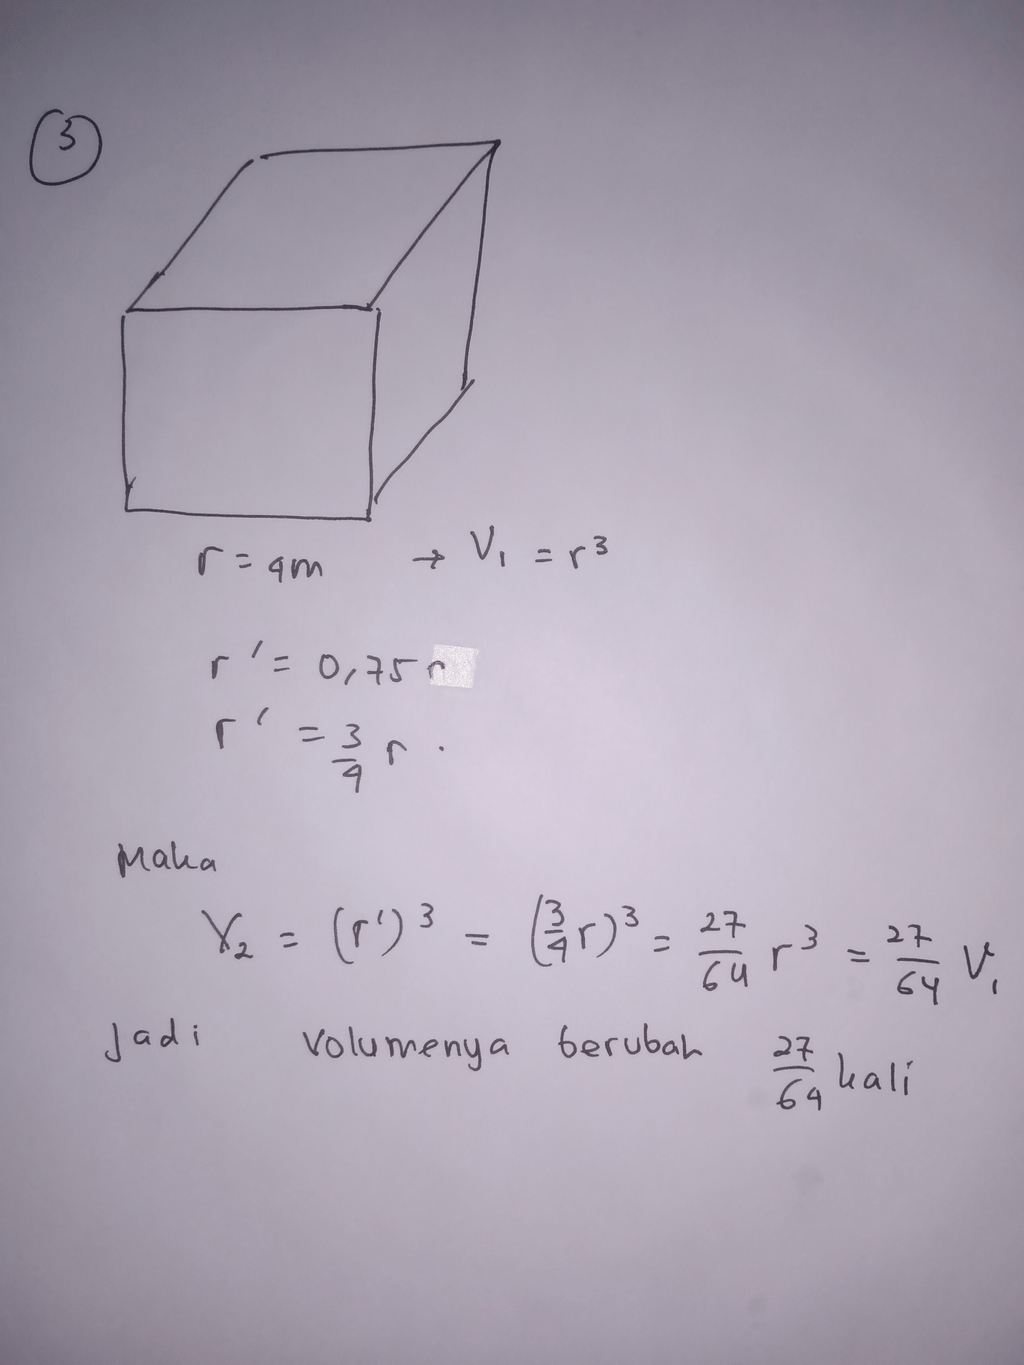 3
r = 4m → V₁ = r³
r' = 0,75 r
r' = 3/4 r .
Maka
V₂ = (r')³ = (3/4 r)³ = 27/64 r³ = 27/64 V₁
Jadi volumenya berubah 27/64 kali